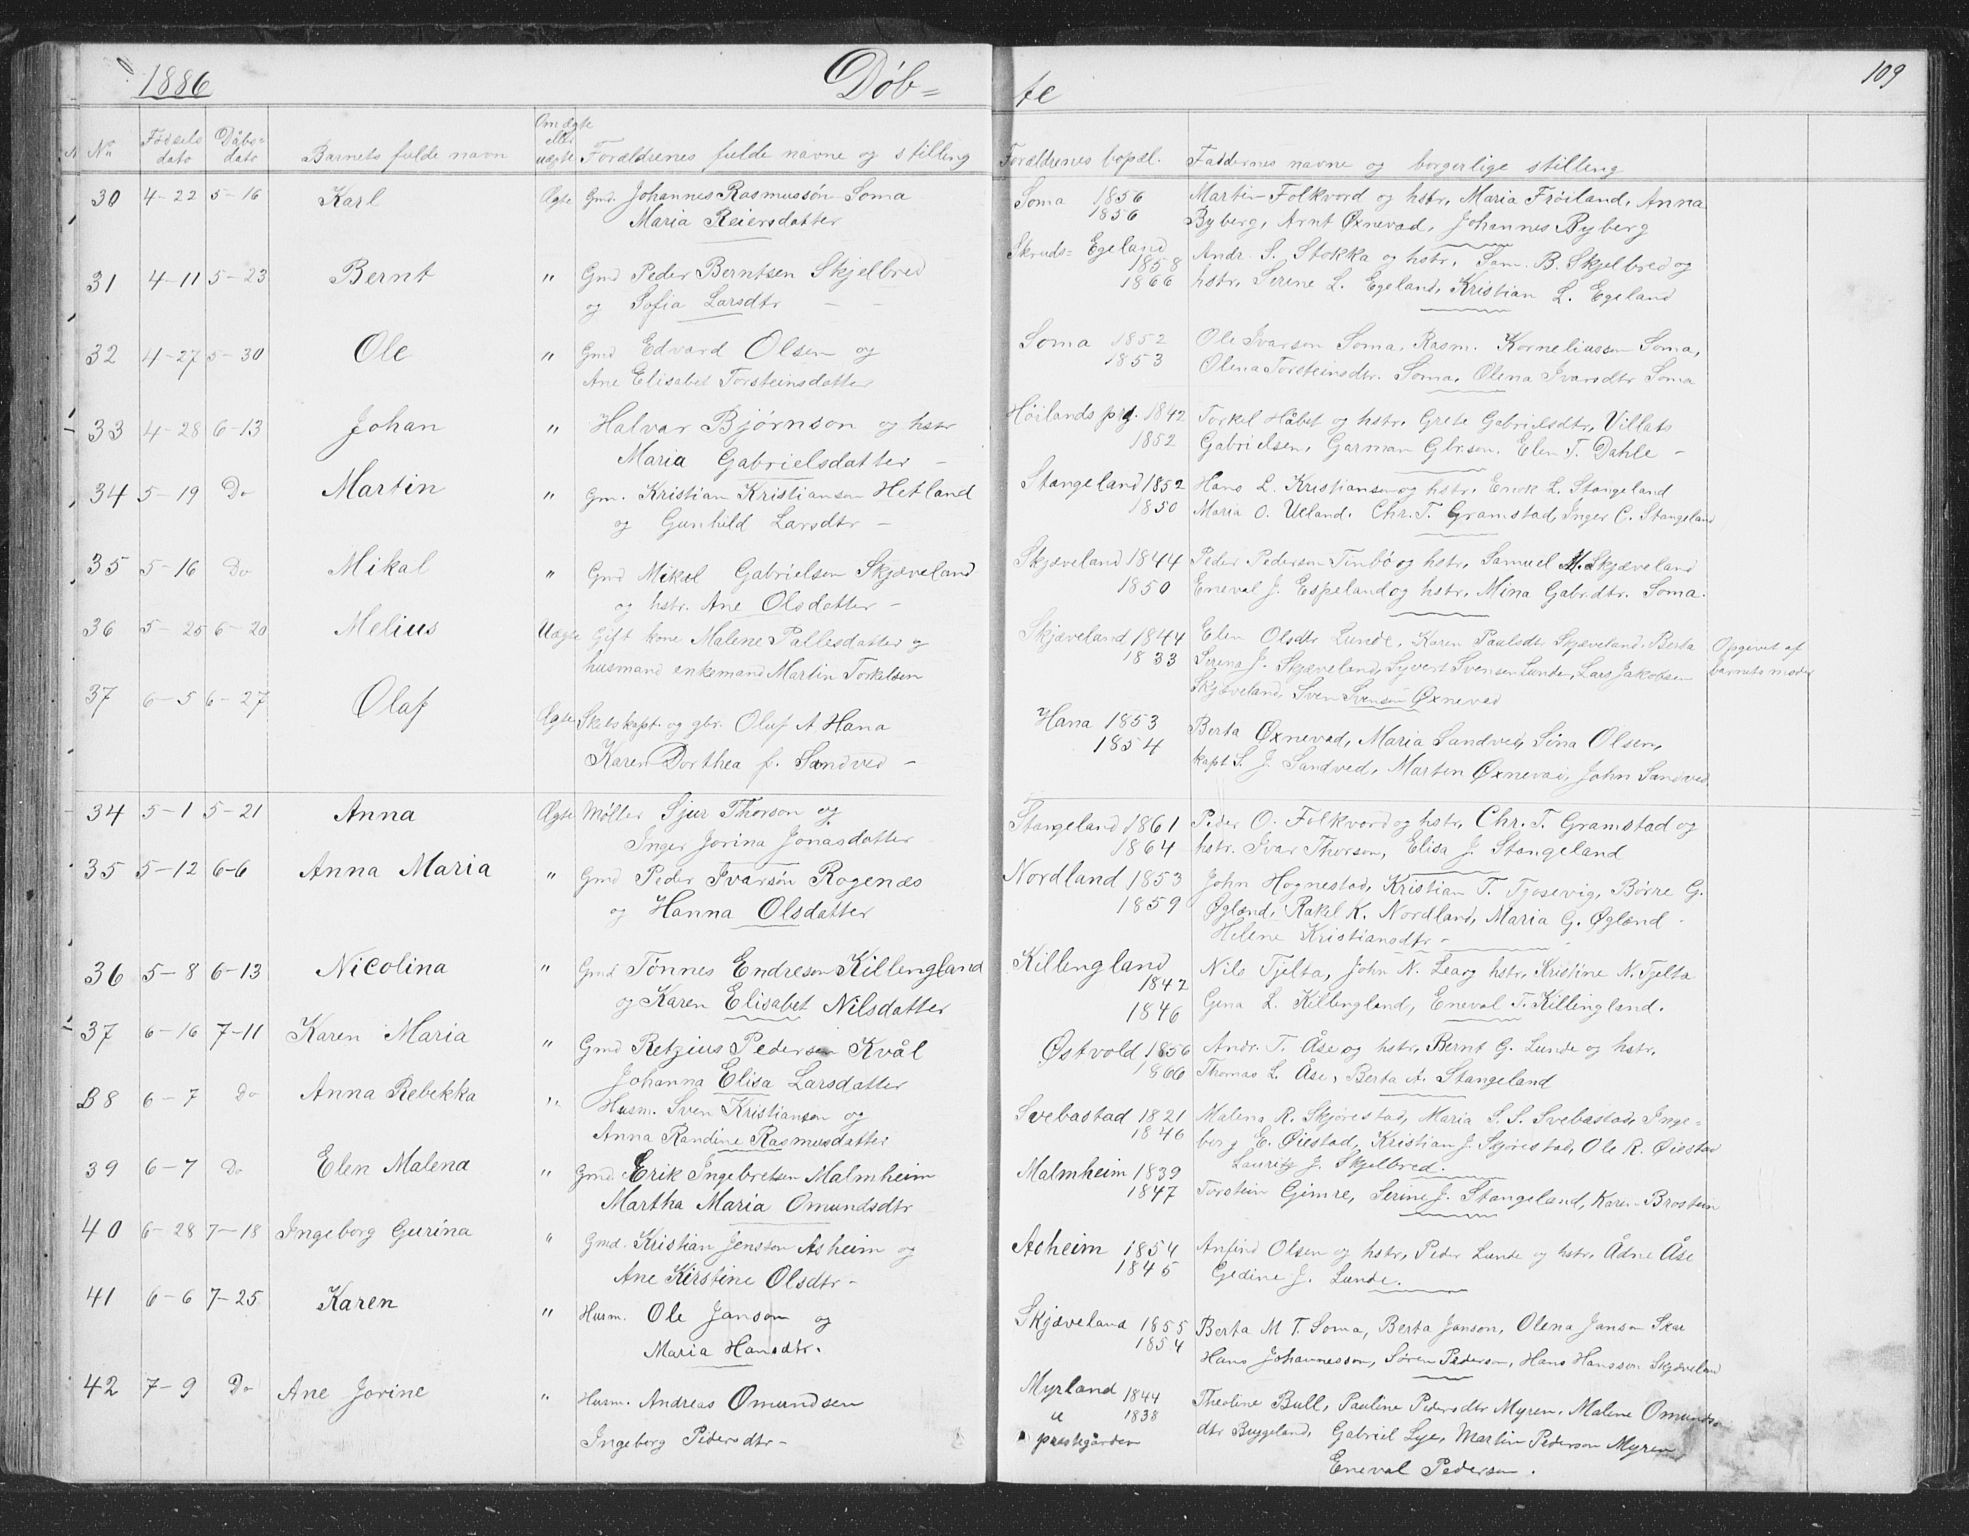 1886 Døb=
te 109
No Fødsels dato Dåbs= dato Barnets fulde navn Om ægte eller uægte Forældrenes fulde navne og stilling Forældrenes bopæl. Faddernes navne og borgerlige stilling
30 4-22 5-16 Karl Ægte Gmd. Johannes Rasmussøn Soma Soma 1856 Martin Folkvord og hstr, Maria Frøiland, Anna
Maria Reiersdatter 1856 Byberg, Arnt Øxnevad, Johannes Byberg
31 4-11 5-23 Bernt " Gmd Peder Berntsen Skjelbred Skruds= Egeland 1858 Andr. S. Stokka og hstr, Sam. B. Skjelbred og
og Sofia Larsdtr 1866 hstr, Serine L. Egeland, Kristian L. Egeland
32 4-27 5-30 Ole " Gmd Edvard Olsen og Soma 1852 Ole Ivarson Soma, Rasm. Korneliussen Soma,
Ane Elisabet Torsteinsdatter 1853 Olena Torsteinsdtr. Soma, Olena Ivarsdtr Soma
33 4-28 6-13 Johan " Halvar Bjørnson og hstr Høilands prg. 1842 Torkel Håbet og hstr, Grete Gabrielsdtr, Villats
Maria Gabrielsdatter - 1852 Gabrielsen, Garman Gbrson. Elen T. Dahle -
34 5-19 Do Martin " Gm. Kristian Kristiansen Hetland Stangeland 1852 Hans L. Kristiansen og hstr, Enok L. Stangeland
og Gunhild Larsdtr - 1850 Maria O. Ueland. Chr. T. Gramstad, Inger C. Stangeland
35 5-16 Do Mikal " Gmd Mikal Gabrielsen Skjæveland Skjæveland 1844 Peder Pedersen Tinbø og hstr, Samuel M. Skjæveland
og hstr. Ane Olsdatter - 1850 Eneval J. Espeland og hstr, Mina Gabrdtr. Soma.
36 5-25 6-20 Melius Uægte Gift kone Malene Pallesdatter og Skjæveland 1844 Elen Olsdtr Lunde, Karen Paulsdtr Skjæveland, Berta Opgivet af
husmand enkemand Martin Torkelsen 1833 Serina J. Skjæveland, Syvert Svensen Lunde, Lars Jakobsen barnets moder
Skjæveland, Sven Svensen Øxnevad
37 6-5 6-27 Olaf Ægte Skibskapt. og gbr. Oluf A Hana Hana 1853 Berta Øxnevad, Maria Sandved, Sina Olsen,
Karen Dorthea f. Sandved - 1854 kapt S. J. Sandved, Martin Øxnevad, John Sandved
34 5-1 5-21 Anna Ægte Møller Sjur Thorson og Stangeland 1861 Peder O. Folkvord og hstr, Chr. T. Gramstad og
Inger Jorina Jonasdatter 1864 hstr. Ivar Thorson, Elisa J. Stangeland
35 5-12 6-6 Anna Maria " Gmd Peder Ivarsøn Rogenæs Nordland 1853 John Hognestad, Kristian T. Tjosevig, Børre G.
og Hanna Olsdatter 1859 Øglænd, Rakel K. Nordland, Maria G. Øglænd
Helene Kristiansdtr -
36 5-8 6-13 Nicolina " Gmd Tønnes Endresen Killengland Killengland 1842 Nils Tjelta, John N. Lea og hstr, Kristine N. Tjelta
og Karen Elisabet Nilsdatter 1846 Gina L. Killengland, Eneval T. Killingland.
37 6-16 7-11 Karen Maria " Gmd Retzius Pedersen Kvål Østvold 1856 Andr. T. Åse og hstr, Bernt G. Lunde og hstr,
Johanna Elisa Larsdatter 1866 Thomas L. Åse, Berta A. Stangeland
38 6-7 Do Anna Rebekka " Husm. Sven Kristiansen og Svebastad 1821 Malena R. Skjørestad, Maria S. S. Svebastad, Inge=
Anna Randine Rasmusdatter 1846 borg E. Øiestad, Kristian J. Skjørestad, Ole R. Øiestad
Lauritz J. Skjelbred.
39 6-7 Do Elen Malena " Gmd Erik Ingebretsen Malmheim Malmheim 1839
Martha Maria Omundsdtr 1847 Torstein Gimre, Serine J. Stangeland, Karen Brostein
40 6-28 7-18 Ingeborg Gurina " Gmd. Kristian Jensson Asheim og Asheim 1854 Anfind Olsen og hstr, Peder Lunde og hstr, Ådne Åse
Ane Kirstine Olsdtr - 1845 Gedine J. Lunde.
41 6-6 7-25 Karen " Husm. Ole Janson og Skjæveland 1855 Berta M T. Soma, Berta Janson, Olena Janson Skar
Maria Hansdtr. 1854 Hans Johannesson, Søren Pederson, Hans Hansson Skjæveland
42 7-9 Do Ane Jorine " Husm. Andreas Omundsen Myrland 1844 Theoline Bull, Pauline Pedersdtr Myren, Malene Omunds
Ingeborg Pedersdtr - u 1838 dtr Bryggeland, Gabriel Lye, Martin Pederson Myren
præstegården Eneval Pedersen.